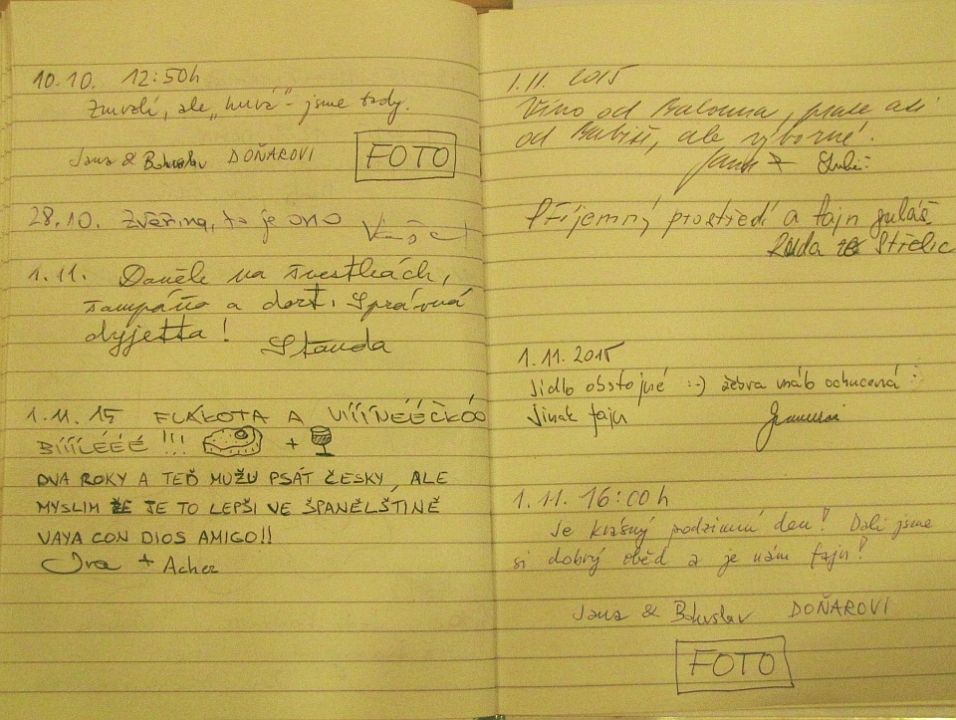 10.10. 12:50h
Zmrzlí, ale „hurá"- jsme tady.
Jana & Bohuslav DOŇAROVI
FOTO
28.10. Zvěřina, to je ONO
1.11. Daněk na švestkách,
šampáňo a dort. Správná
dyjetta!
Standa
1.11.15 FLÁKOTA A VÍÍÍNÉÉČKÓO
BÍÍÍLÉÉÉ !!! +
DVA ROKY A TEĎ MUŽU PSÁT ČESKY, ALE
MYSLIM ŽE JE TO LEPŠI VE ŠPANĚLŠTINĚ
VAYA CON DIOS AMIGO!!
Iva + Achez
1.11. 2015
Víno od Balouna, prase asi
od Babiše, ale výborné.
Příjemný prostředí a fajn guláš
Ruda ze Střelic
1.11.2015
Jidlo obstojné :-) žebra málo ochucená :-)
Jinak fajn
1.11. 16:00h
Je krásný podzimní den! Dali jsme
si dobrý oběd a je nám fajn!
Jana & Bohuslav DOŇAROVI
FOTO